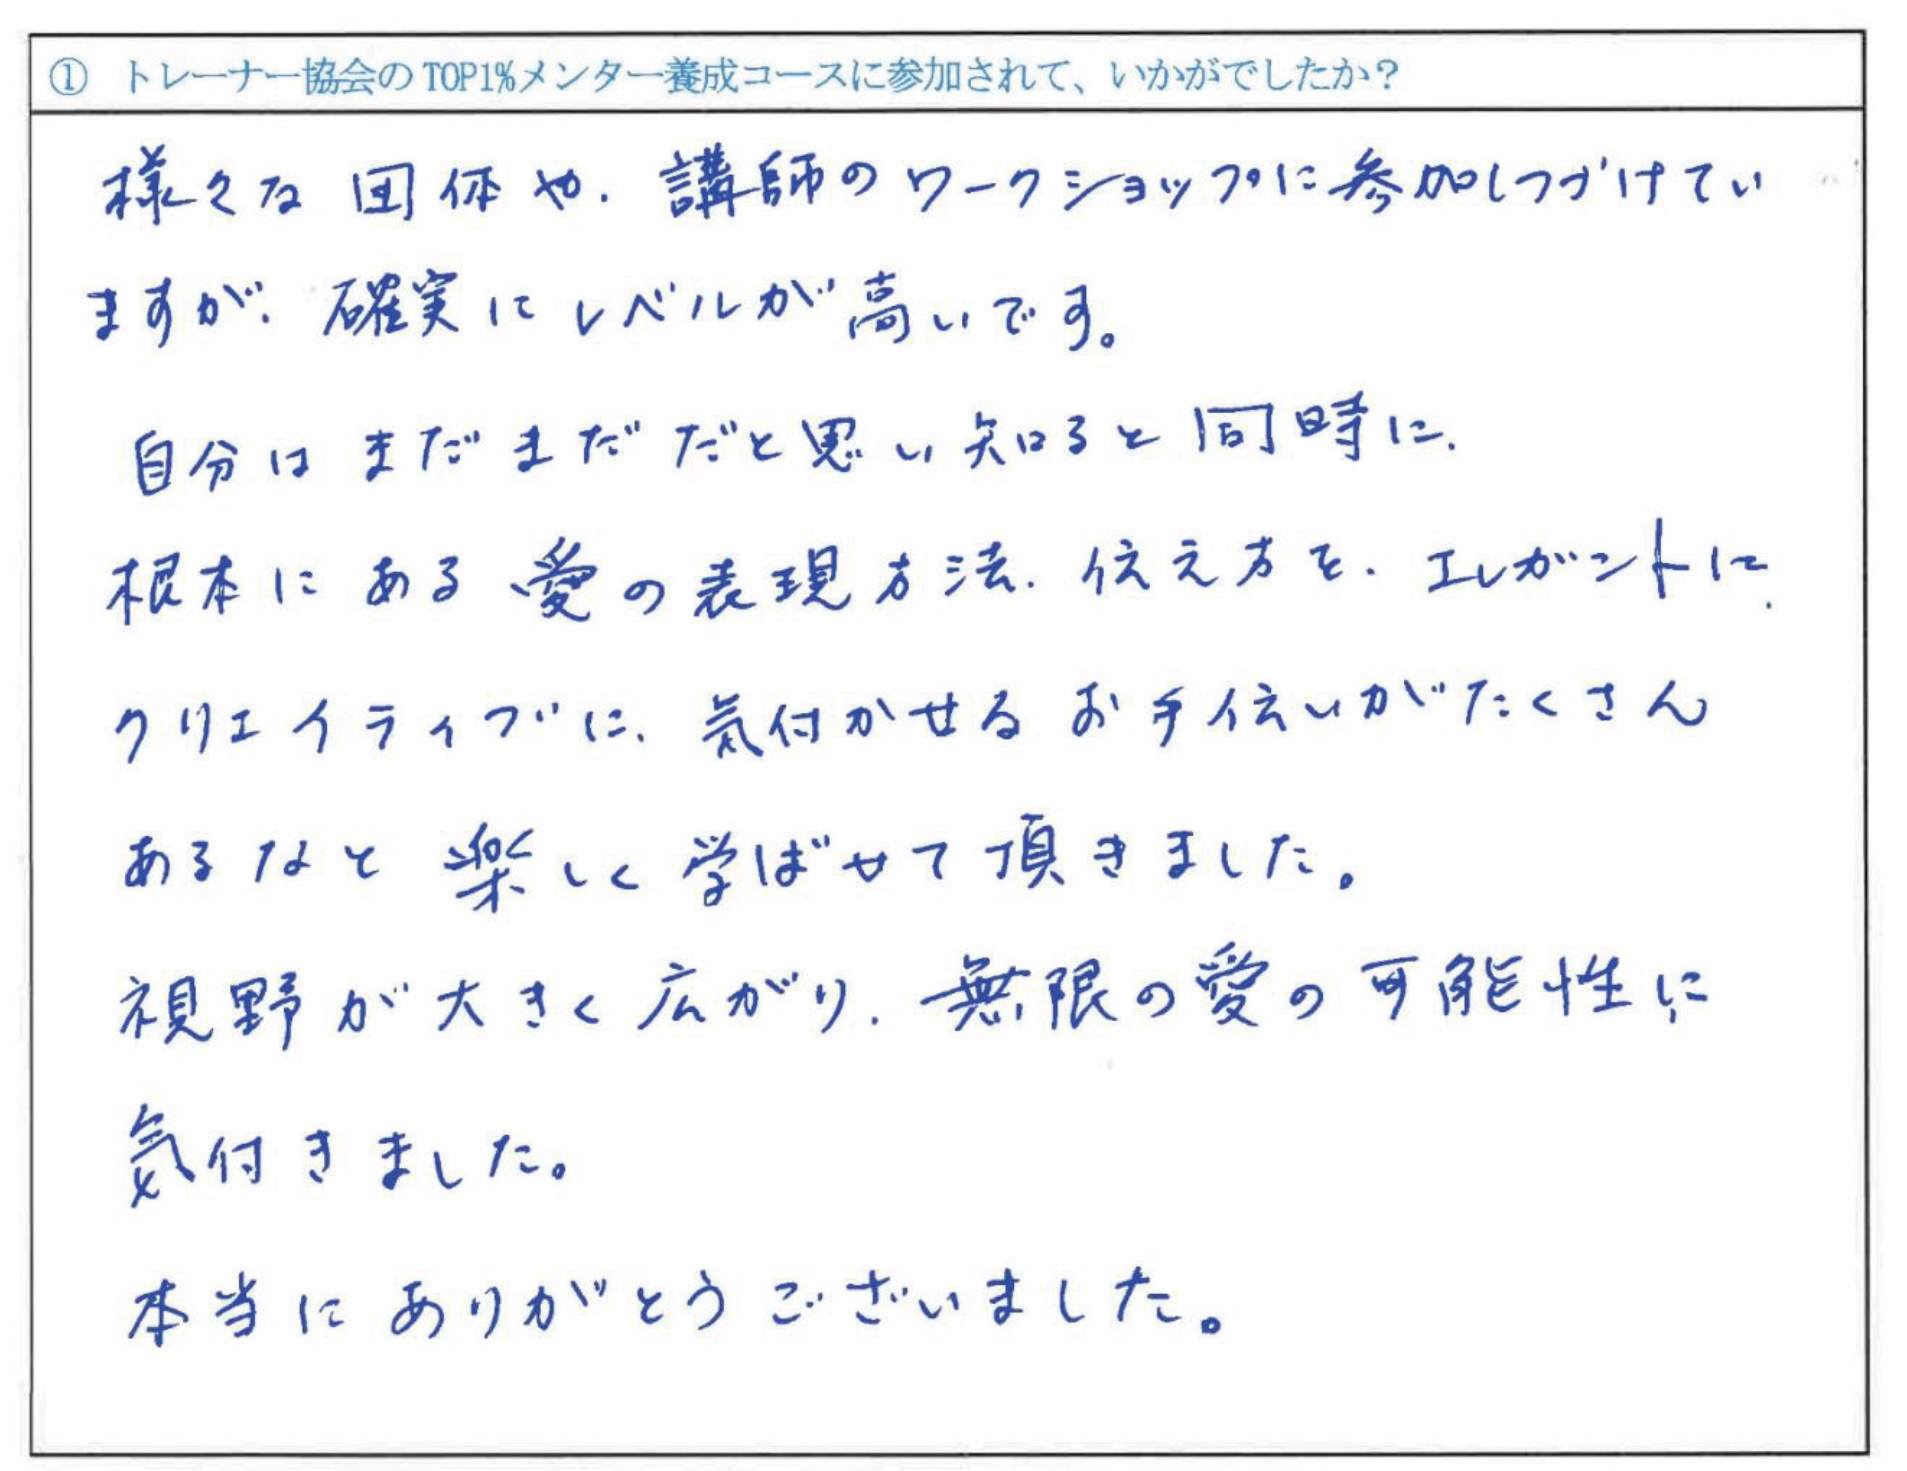 ① トレーナー協会のTOP1%メンター養成コースに参加されて、いかがでしたか？
様々な団体や、講師のワークショップに参加しつづけてい
ますが、確実にレベルが高いです。
自分はまだまだだと思い知ると同時に、
根本にある愛の表現方法、伝え方を、エレガントに、
クリエイティブに、気付かせるお手伝いがたくさん
あるなと楽しく学ばせて頂きました。
視野が大きく広がり、無限の愛の可能性に
気付きました。
本当にありがとうございました。